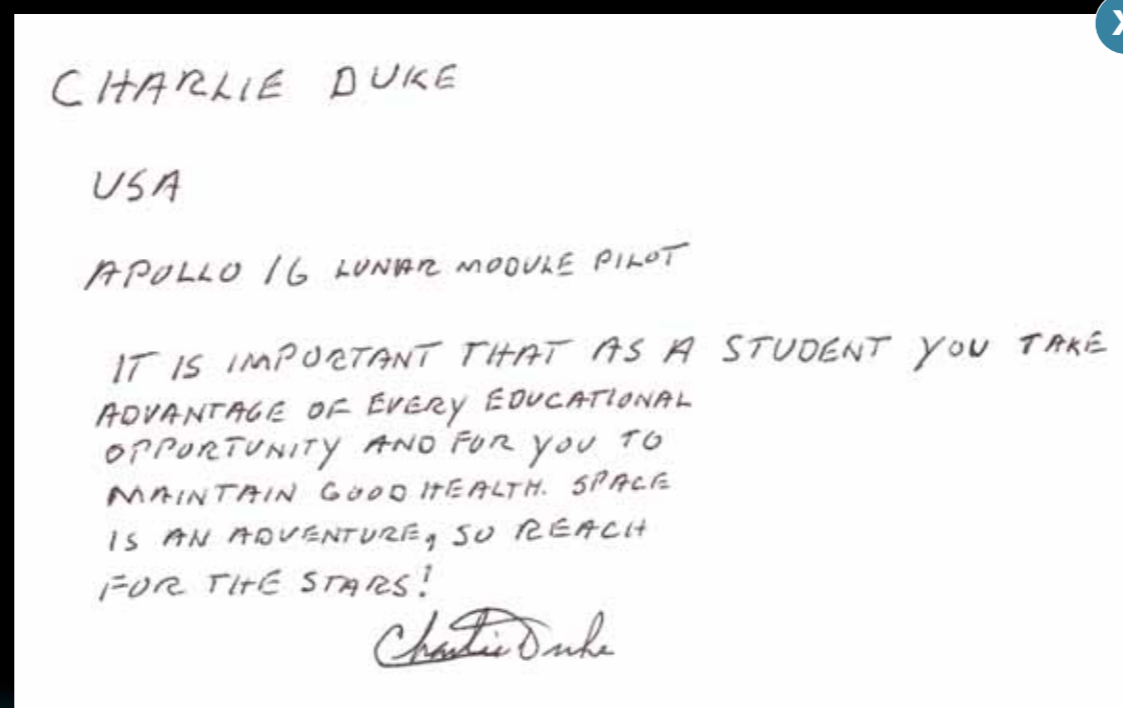 CHARLIE DUKE
USA
APOLLO 16 LUNAR MODULE PILOT
IT IS IMPORTANT THAT AS A STUDENT YOU TAKE
ADVANTAGE OF EVERY EDUCATIONAL
OPPORTUNITY AND FOR YOU TO
MAINTAIN GOOD HEALTH. SPACE
IS AN ADVENTURE, SO REACH
FOR THE STARS!
Charlie Duke